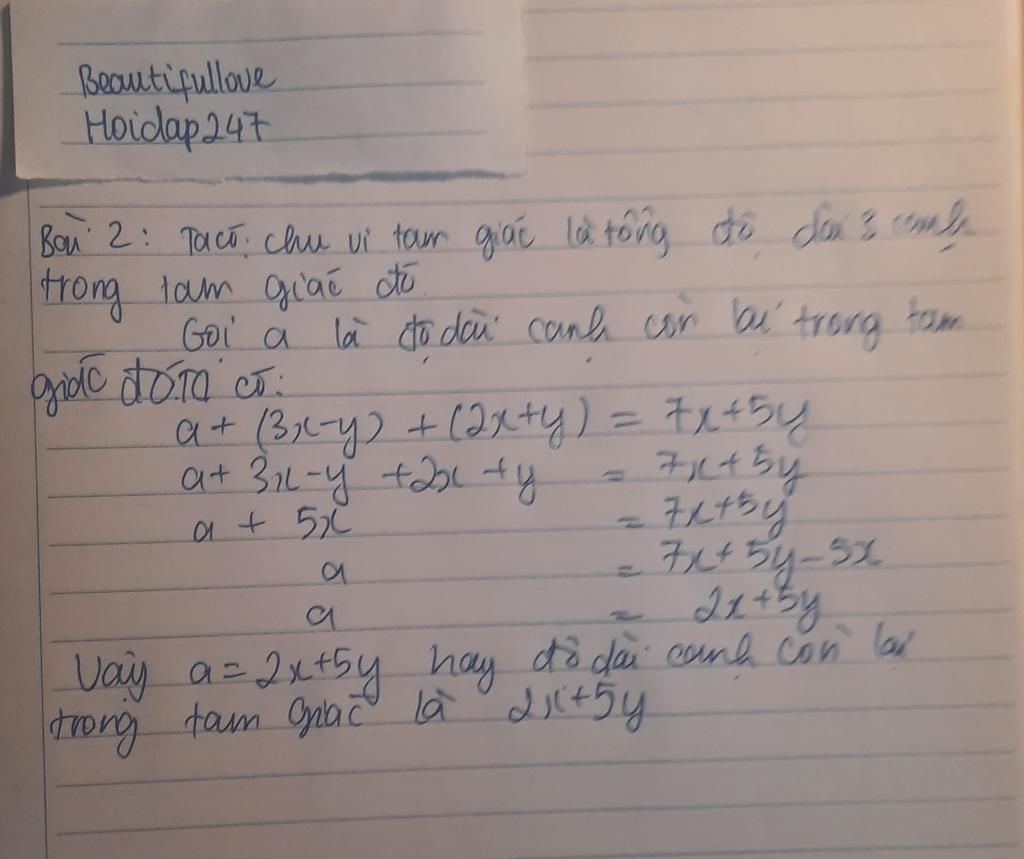 Beautifullove
Hoidap247
Bài 2: Ta có: chu vi tam giác là tổng độ dài 3 cạnh
trong tam giác đó
Gọi a là độ dài cạnh còn lại trong tam
giác đó. Ta có:
a + (3x-y) + (2x+y) = 7x+5y
a + 3x-y +2x +y = 7x+5y
a + 5x = 7x+5y
a = 7x+5y-5x
a = 2x+5y
Vậy a = 2x+5y hay độ dài cạnh còn lại
trong tam giác là 2x+5y